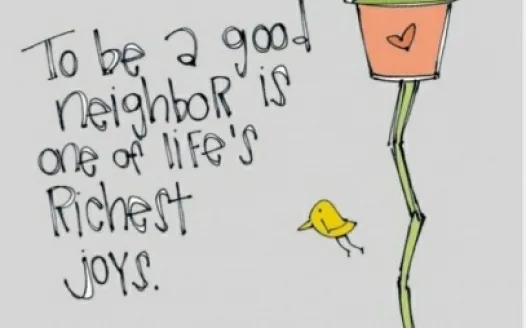 To be a good
neighboR is
one of life's
Richest
joys.